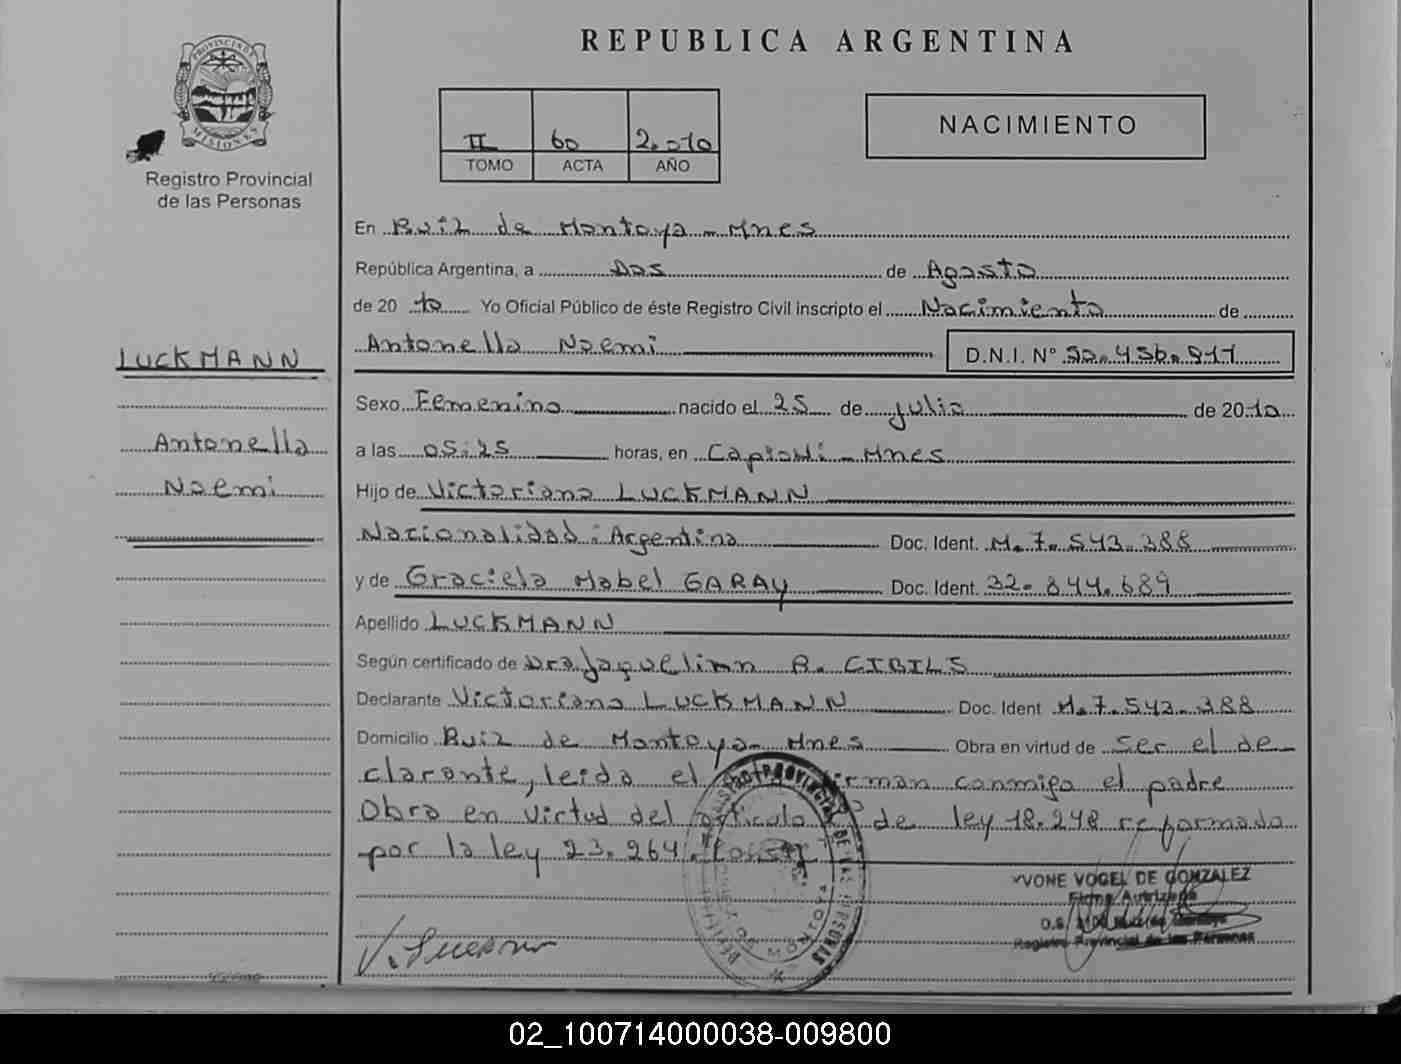 REPUBLICA ARGENTINA
PROVINCIA DE
MISIONES
Registro Provincial
de las Personas
II 60 2.010
TOMO ACTA AÑO
NACIMIENTO
En Ruiz de Montoya - Mnes
República Argentina, a Dos de Agosto
de 20 10 Yo Oficial Público de éste Registro Civil inscripto el Nacimiento de
Antonella Noemi D.N.I. Nº 50.456.811
LUCKMANN
Antonella
Noemi
Sexo Femenino nacido el 25 de julio de 2010
a las 05:25 horas, en Capioví - Mnes
Hijo de Victoriano LUCKMANN
Nacionalidad: Argentina Doc. Ident. M. 7.543.388
y de Graciela Mabel GARAY Doc. Ident. 32.844.689
Apellido LUCKMANN
Según certificado de Dra Jaquelinn R. CIBILS
Declarante Victoriano LUCKMANN Doc. Ident M.7.543.388
Domicilio Ruiz de Montoya - Mnes Obra en virtud de ser el de-
clarante, leida el firman conmigo el padre
Obra en virtud del articulo de ley 18.248 reformado
por la ley 23.264.
YVONE VOGEL DE GONZALEZ
Firma Autorizada
Registro Provincial de las Personas
REGISTRO PROVINCIAL DE LAS PERSONAS
MONTOYA
02_100714000038-009800